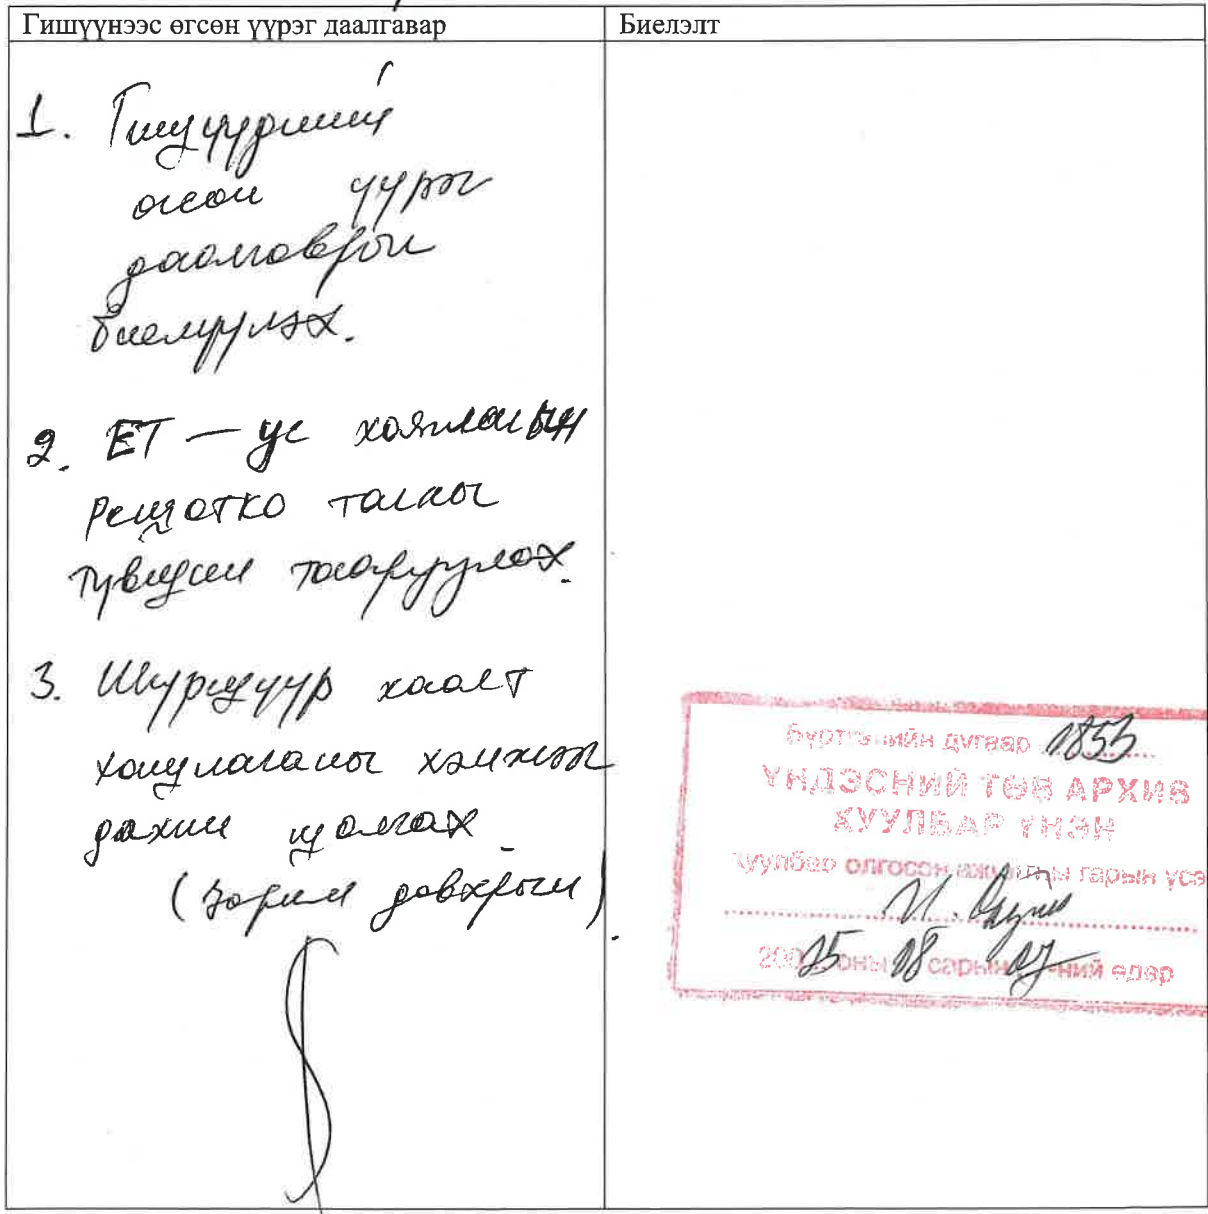 Гишүүнээс өгсөн үүрэг даалгавар
Биелэлт
1. Гишүүдийн
өгсөн үүрэг
даалгаврыг
биелүүлэх.
2. ЕТ – ус хоолойн
Решотко талаас
түвшин тааруулах.
3. Шүршүүр хаалт
хонгилын хэмжээг
дахин шалгах
(зарим давхрын)
Бүртгэлийн дугаар 1853
ҮНДЭСНИЙ ТӨВ АРХИВ
ХУУЛБАР ҮНЭН
хуулбар олгосон ажилтны гарын үсэг
200 25 оны 08 сарын 27-ний өдөр